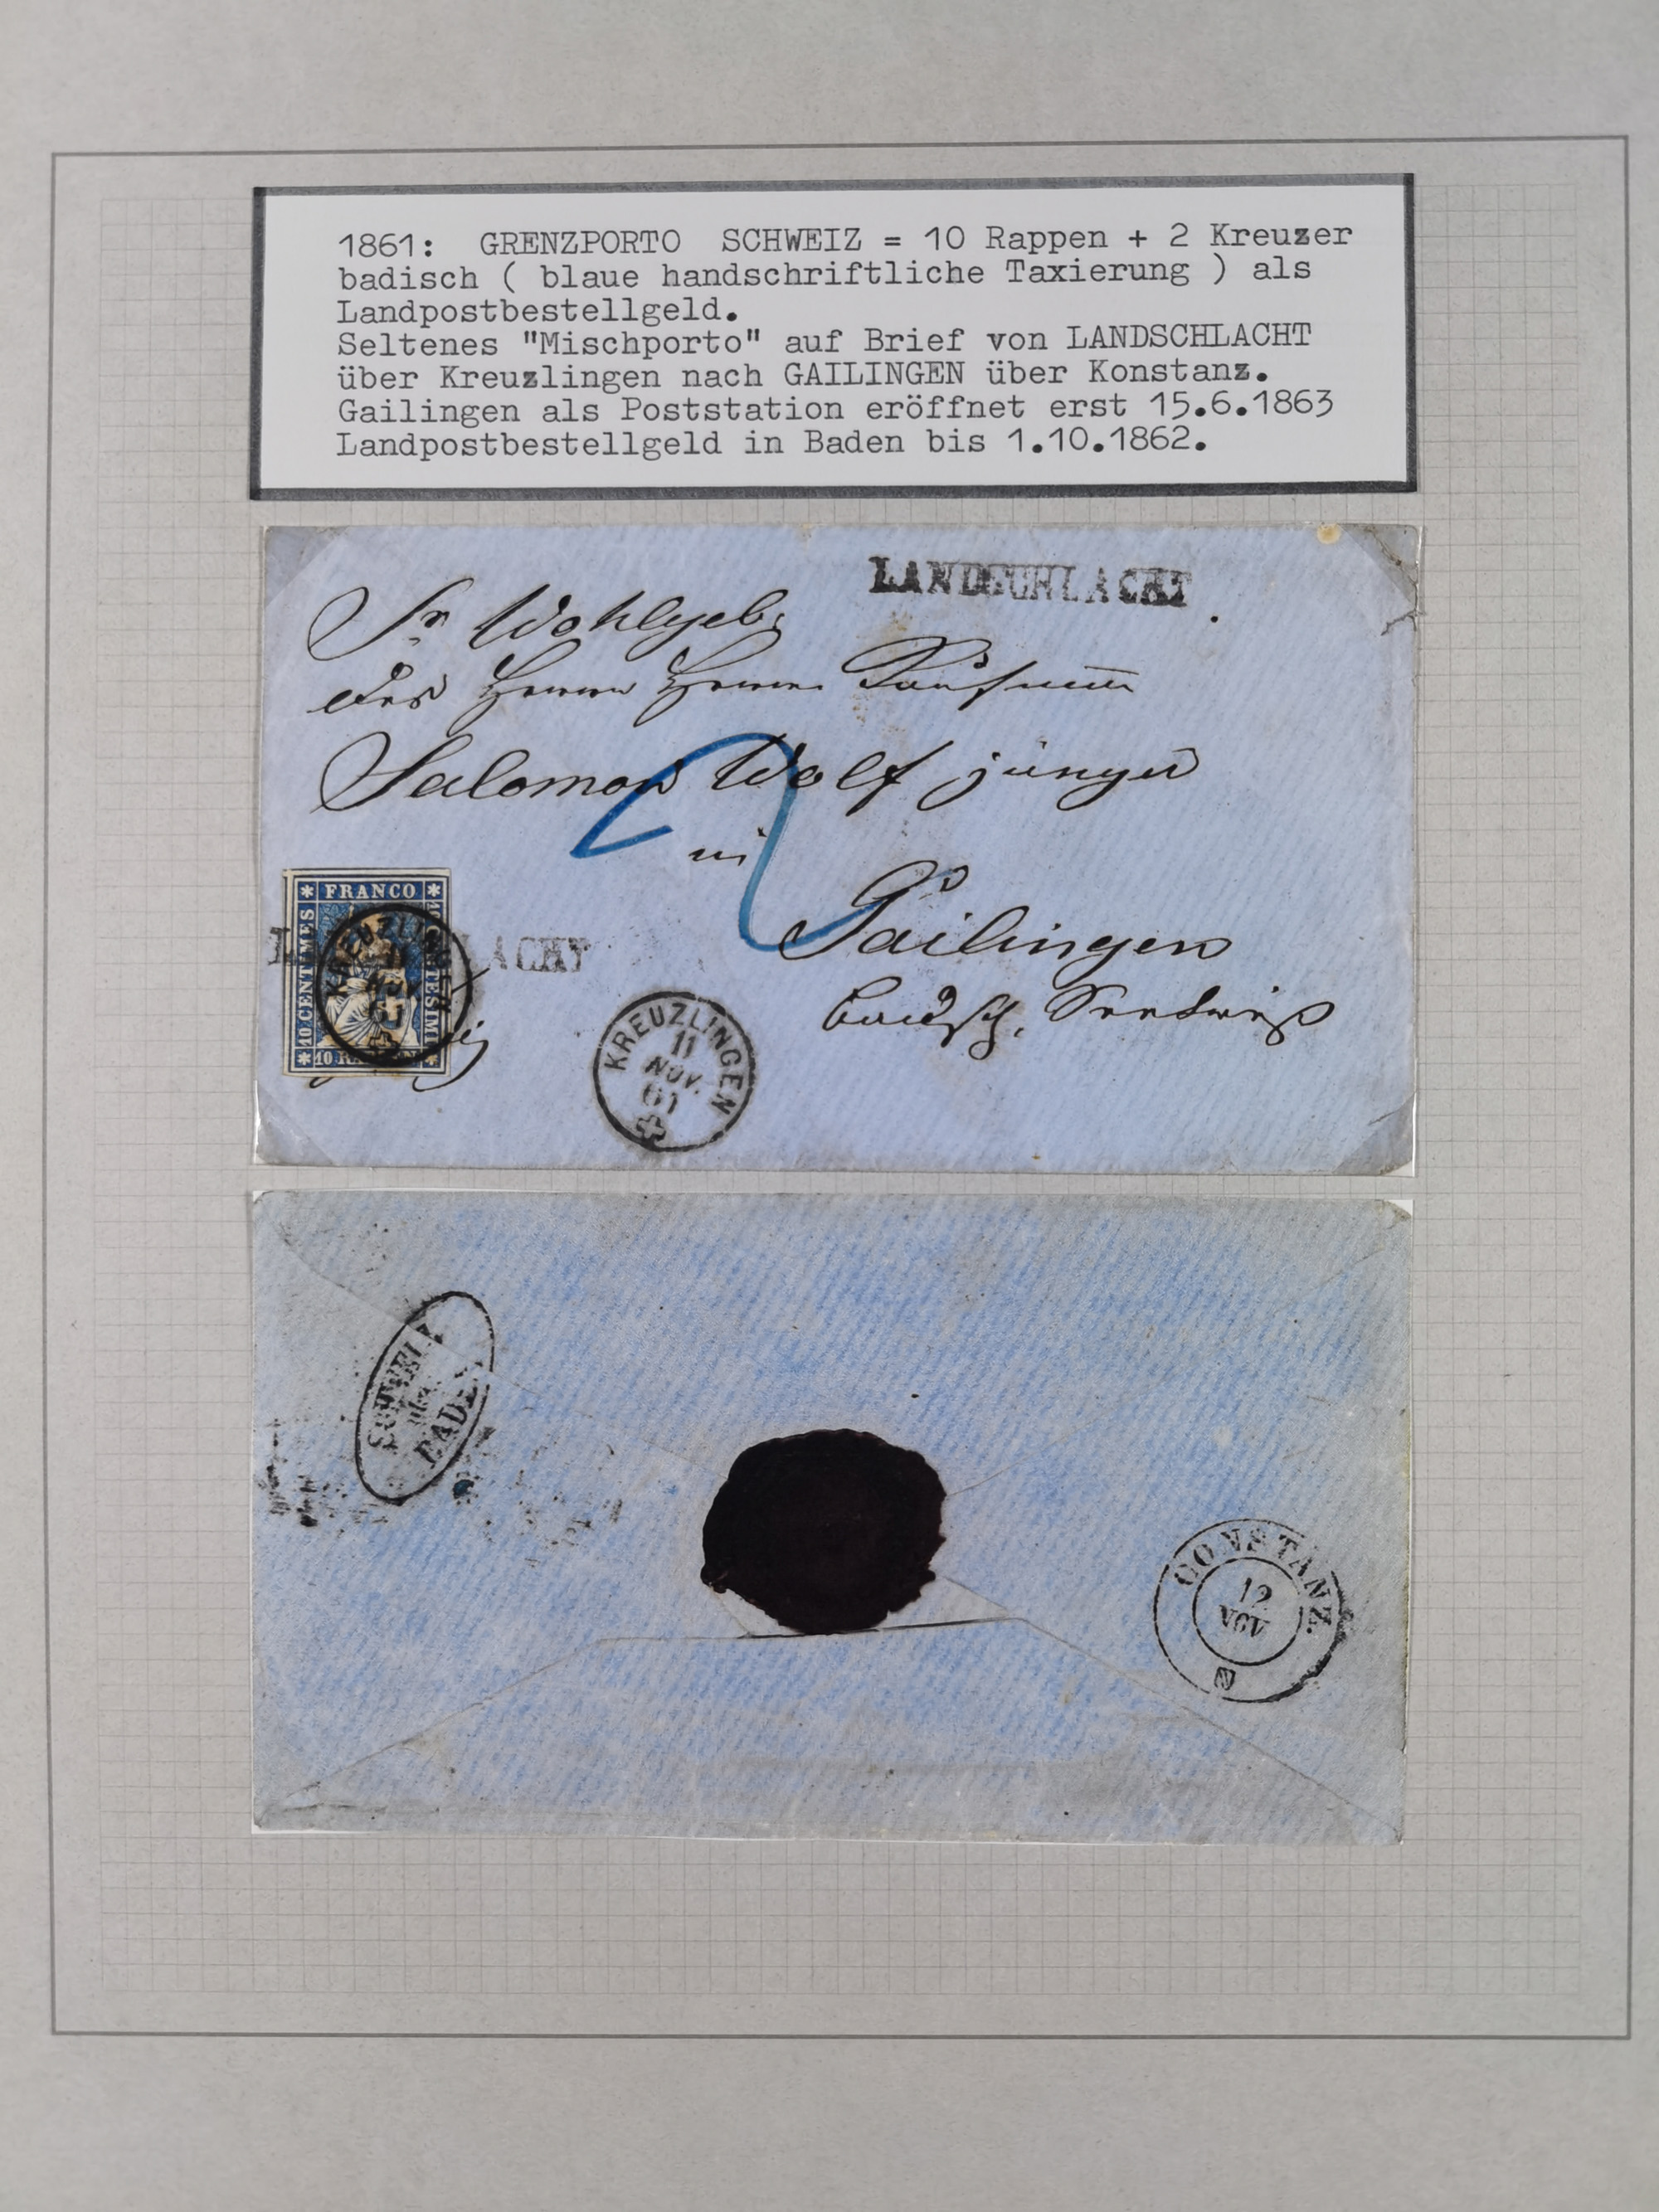 1861: GRENZPORTO SCHWEIZ = 10 Rappen + 2 Kreuzer
badisch ( blaue handschriftliche Taxierung ) als
Landpostbestellgeld.
Seltenes "Mischporto" auf Brief von LANDSCHLACHT
über Kreuzlingen nach GAILINGEN über Konstanz.
Gailingen als Poststation eröffnet erst 15.6.1863
Landpostbestellgeld in Baden bis 1.10.1862.
LANDSCHLACHT
Sr Wohlgeb.
des Herrn Herrn Kaufmann
Salomon Wolf jünger
2
in
Gailingen
badisch. Seekreis
FRANCO
10 CENTIMES
10 CENTESIMI
10 RAPPEN
KREUZLINGEN
11
NOV
61
LACHT
frei
KREUZLINGEN
11
NOV.
61
SCHWEIZ
über
BADEN
CONSTANZ.
12
NOV